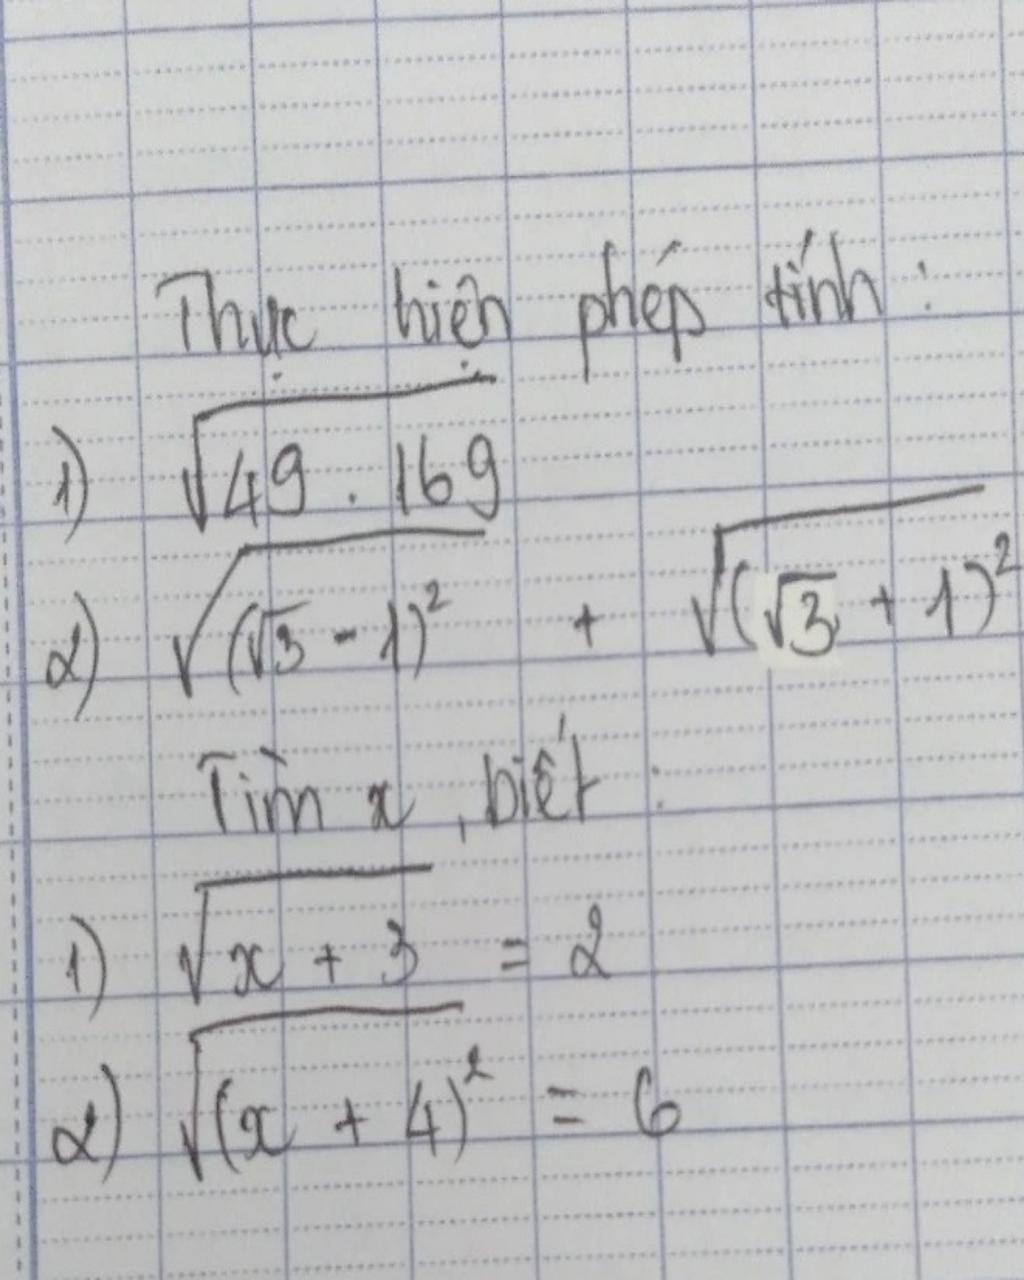 Thực hiện phép tính :
1) √(49 . 169)
2) √((√3 - 1)²) + √((√3 + 1)²)
Tìm x, biết :
1) √(x + 3) = 2
2) √((x + 4)²) = 6